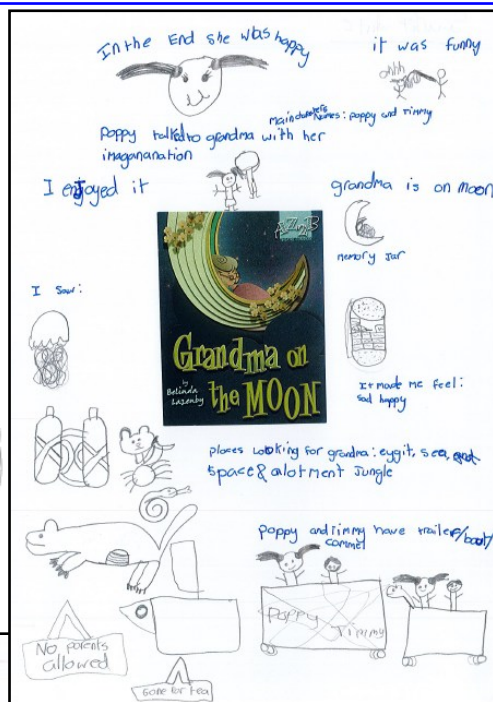 In the End she was happy
it was funny
ohhh
main characters names: poppy and Timmy
Poppy talked to grandma with her
imaganation
I enjoyed it
grandma is on moon
memory Jar
AZ2B
Grandma on
the MOON
by
Belinda
Lazenby
I saw:
It made me feel:
sad happy
places looking for grandma: eygit, sea,
space & alotment Jungle
poppy and Timmy have trailer/boat/
cammel
Poppy
Timmy
No parents
allowed
Gone for tea